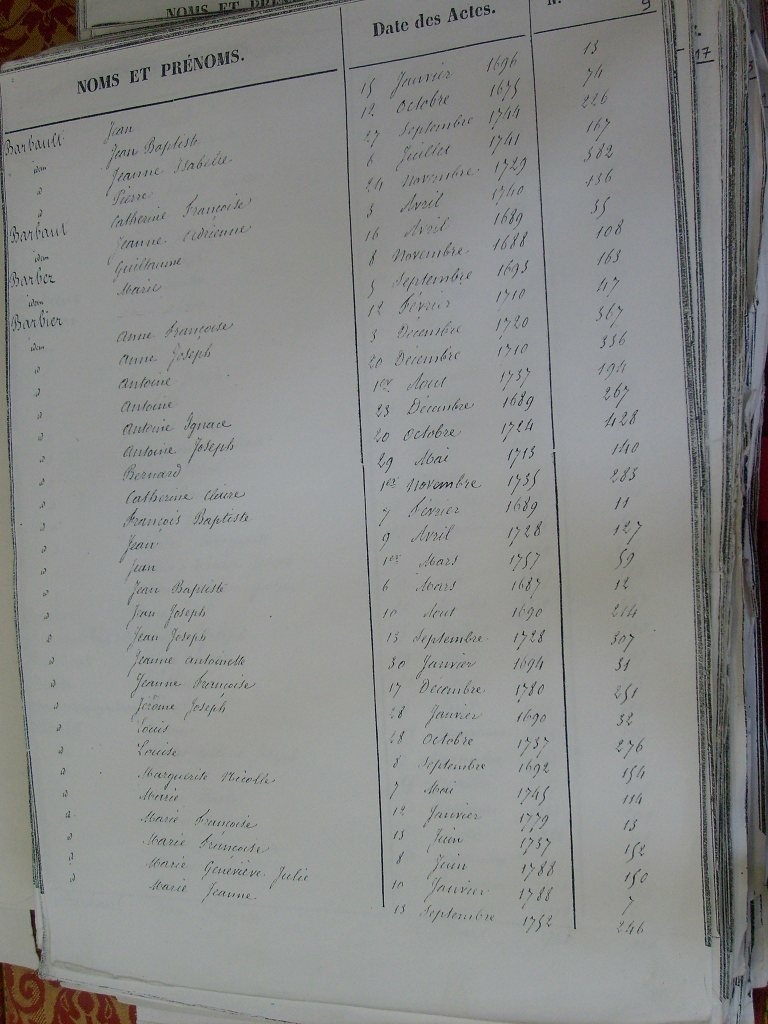 NOMS ET PRÉNOMS. Date des Actes. N. 9
Barbault Jean 15 Janvier 1696 13
idem Jean Baptiste 12 Octobre 1675 74
d Jeanne Isabelle 27 Septembre 1744 226
d Pierre 6 Juillet 1741 167
Barbaut Catherine Françoise 24 Novembre 1729 382
idem Jeanne Adrienne 3 Avril 1740 136
Barber Guillaume 16 Avril 1689 35
idem Marie 8 Novembre 1688 108
Barbier 5 Septembre 1693 163
idem Anne Françoise 12 Février 1710 47
d Anne Joseph 3 Décembre 1720 367
d Antoine 20 Décembre 1710 336
d Antoine 1er Aout 1737 194
d Antoine Ignace 23 Décembre 1689 267
d Antoine Joseph 20 Octobre 1724 428
d Bernard 29 Mai 1713 140
d Catherine Claire 1er Novembre 1735 283
d François Baptiste 7 Février 1689 11
d Jean 9 Avril 1728 127
d Jean 1er Mars 1757 59
d Jean Baptiste 6 Mars 1687 12
d Jean Joseph 10 Aout 1690 214
d Jean Joseph 13 Septembre 1728 307
d Jeanne Antoinette 30 Janvier 1694 31
d Jeanne Françoise 17 Décembre 1780 251
d Jérôme Joseph 28 Janvier 1690 32
d Louis 28 Octobre 1737 276
d Louise 8 Septembre 1692 154
d Marguerite Nicolle 7 Mai 1745 114
d Marie 12 Janvier 1779 13
d Marie Françoise 13 Juin 1737 152
d Marie Françoise 8 Juin 1788 150
d Marie Geneviève Julie 10 Janvier 1788 7
d Marie Jeanne 13 Septembre 1752 246
17